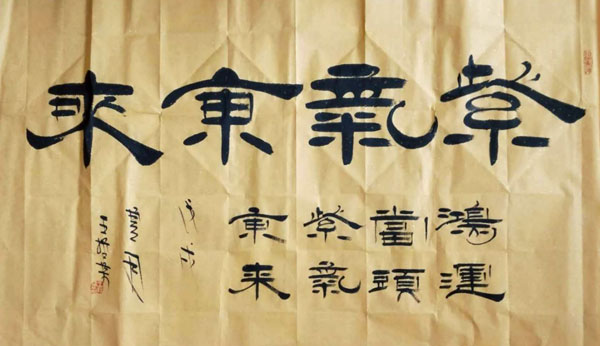 紫氣東來
鴻運
當頭
紫氣
東来